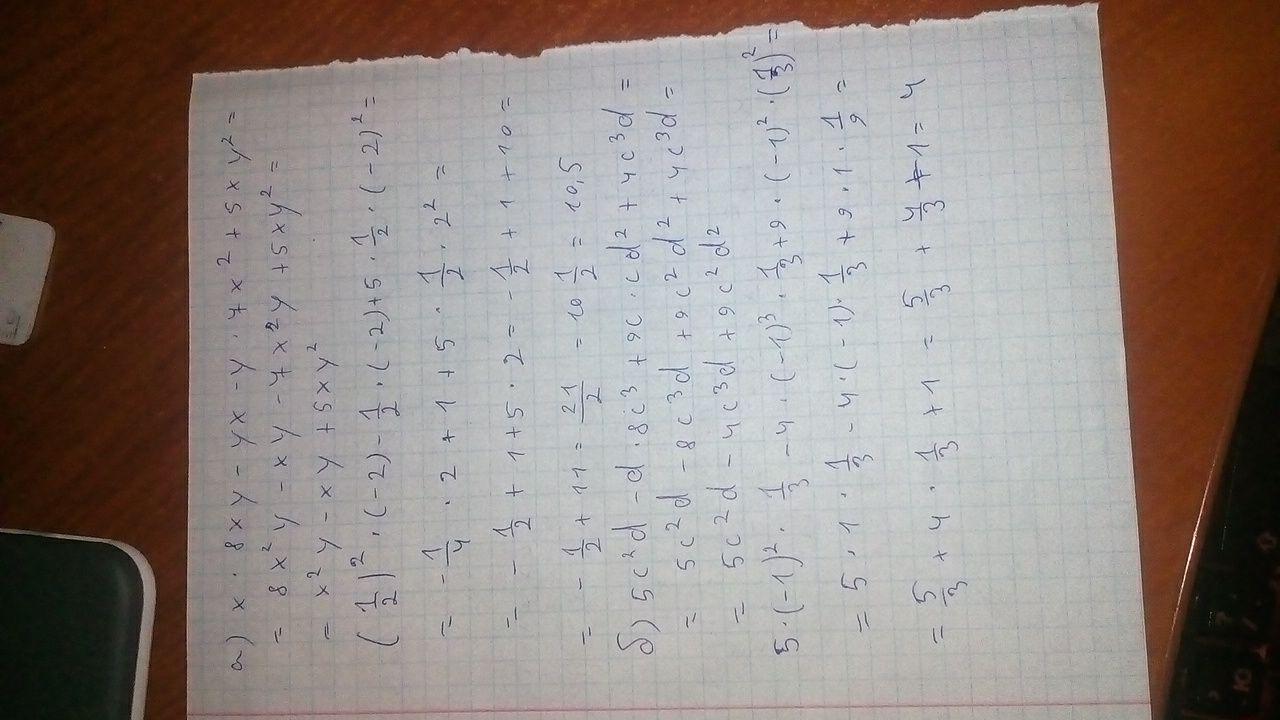 а) x · 8xy - yx - y · 7x² + 5xy² =
= 8x²y - xy - 7x²y + 5xy² =
= x²y - xy + 5xy²
(1/2)² · (-2) - 1/2 · (-2) + 5 · 1/2 · (-2)² =
= - 1/4 · 2 + 1 + 5 · 1/2 · 2² =
= - 1/2 + 1 + 5 · 2 = - 1/2 + 1 + 10 =
= - 1/2 + 11 = 21/2 = 10 1/2 = 10,5
б) 5c²d - d · 8c³ + 9c · cd² + 4c³d =
= 5c²d - 8c³d + 9c²d² + 4c³d =
= 5c²d - 4c³d + 9c²d²
5 · (-1)² · 1/3 - 4 · (-1)³ · 1/3 + 9 · (-1)² · (1/3)² =
= 5 · 1 · 1/3 - 4 · (-1) · 1/3 + 9 · 1 · 1/9 =
= 5/3 + 4 · 1/3 + 1 = 5/3 + 4/3 + 1 = 4